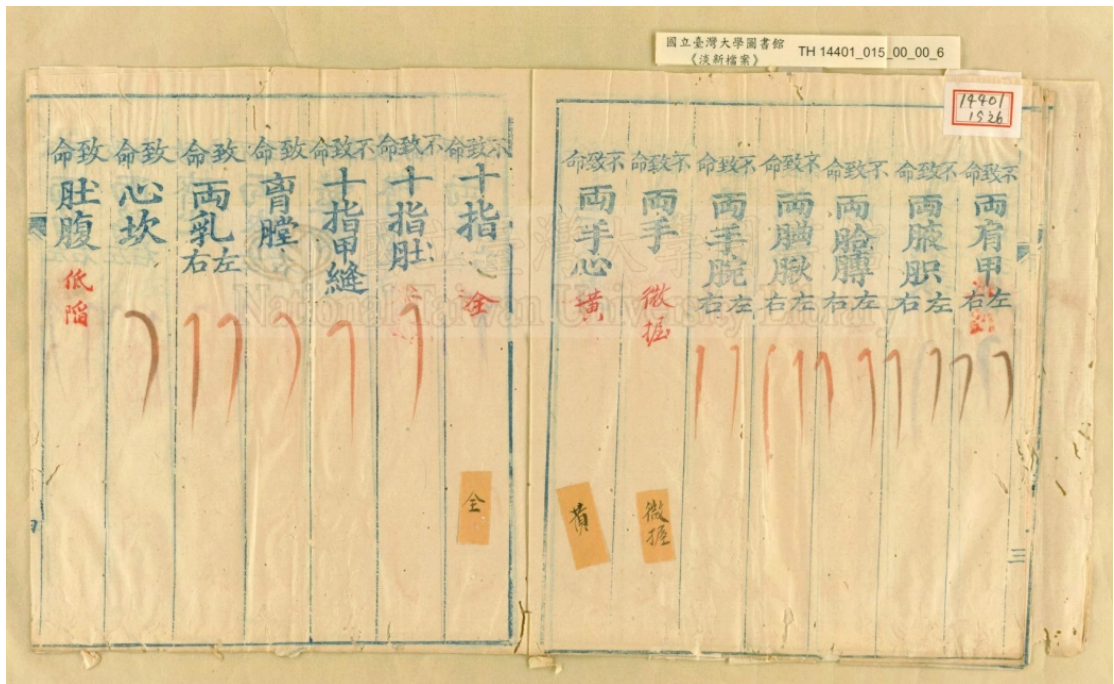 國立臺灣大學圖書館
《淡新檔案》
TH 14401_015_00_00_6
14401
1526
不致命 兩肩甲 左右
不致命 兩腋胑 左右
不致命 兩胳膊 左右
不致命 兩𦛨瞅 左右
不致命 兩手腕 左右
不致命 兩手 微握
微握
不致命 兩手心 黃
黃
三
不致命 十指 全
全
不致命 十指肚
不致命 十指甲縫
致命 胷膛
致命 兩乳 左右
致命 心坎
致命 肚腹 低陷
國立臺灣大學
National Taiwan University Library